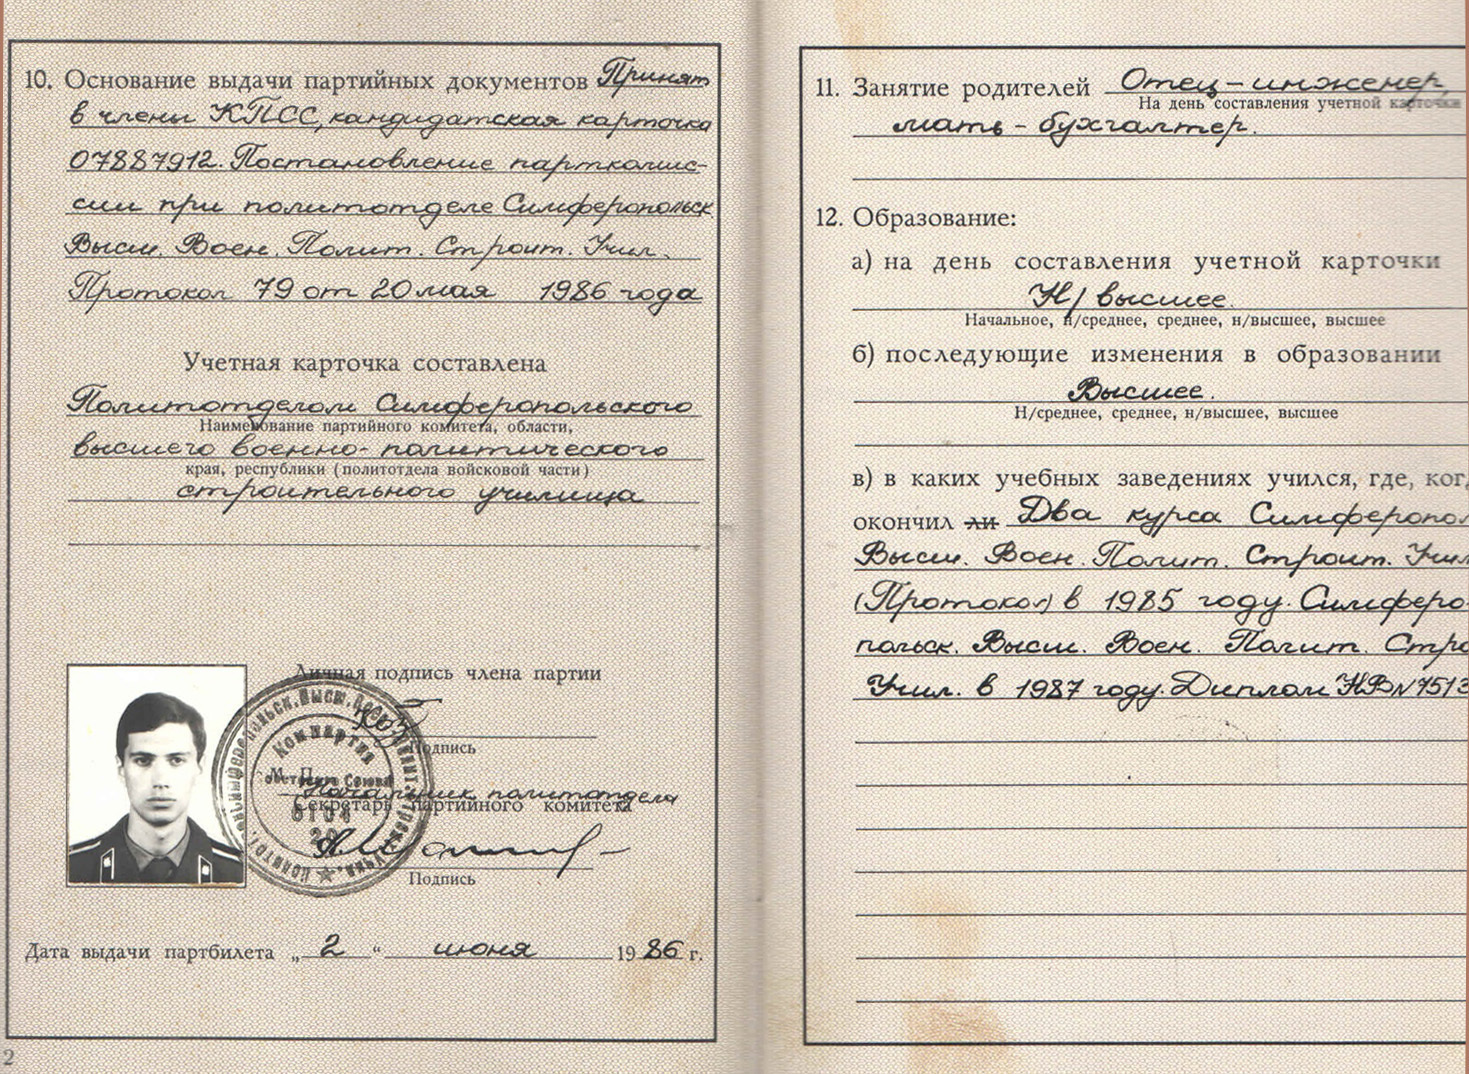 10. Основание выдачи партийных документов Принят
в члены КПСС, кандидатская карточка
07887912. Постановление парткомис-
сии при политотделе Симферопольск
Высш. Воен. Полит. Строит. Учил.
Протокол 79 от 20 мая 1986 года
Учетная карточка составлена
Политотделом Симферопольского
Наименование партийного комитета, области,
высшего военно-политического
края, республики (политотдела войсковой части)
строительного училища
Личная подпись члена партии
Подпись
М. П.
Компартия
Советского Союза
Начальник политотдела
Секретарь партийного комитета
Подпись
Дата выдачи партбилета „ 2 “ июня 1986 г.
2
11. Занятие родителей Отец - инженер,
На день составления учетной карточки
мать - бухгалтер.
12. Образование:
а) на день составления учетной карточки
Н/высшее.
Начальное, н/среднее, среднее, н/высшее, высшее
б) последующие изменения в образовании
Высшее.
Н/среднее, среднее, н/высшее, высшее
в) в каких учебных заведениях учился, где, ког
окончил ли Два курса Симферопол
Высш. Воен. Полит. Строит. Учил
(Протокол) в 1985 году. Симферо-
польск. Высш. Воен. Полит. Стро
Учил. в 1987 году. Диплом НВ№7513